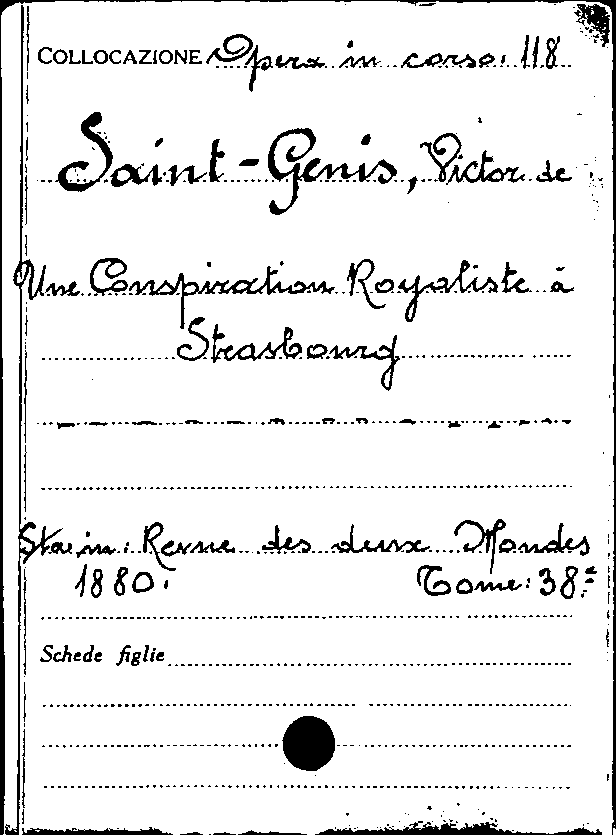 COLLOCAZIONE Opera in corso. 118
Saint-Genis, Victor de
Une Conspiration Royaliste à
Strasbourg
Sta in: Revue des deux Mondes
1880. Tome: 38.º
Schede figlie